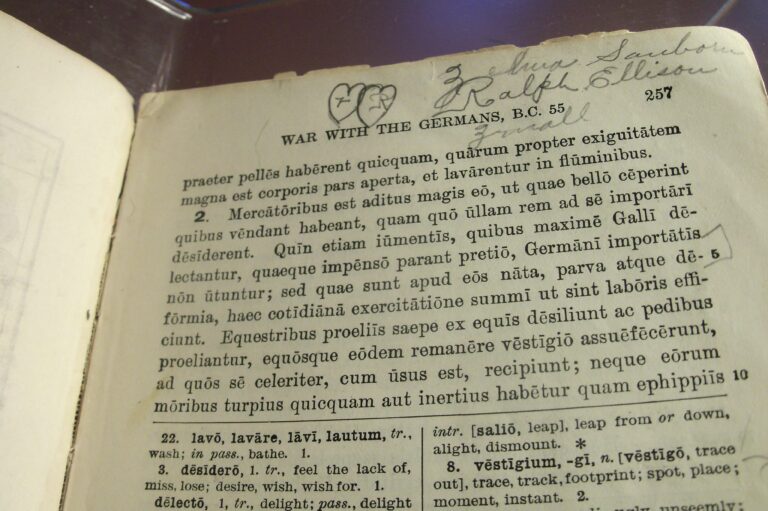 Zelma Sanborn
Ralph Ellison
257
WAR WITH THE GERMANS, B.C. 55
praeter pellēs habērent quicquam, quārum propter exiguitātem
magna est corporis pars aperta, et lavārentur in flūminibus.
2. Mercātōribus est aditus magis eō, ut quae bellō cēperint
quibus vēndant habeant, quam quō ūllam rem ad sē importārī
dēsīderent. Quīn etiam iūmentīs, quibus maximē Gallī dē-
lectantur, quaeque impēnsō parant pretiō, Germānī importātīs
nōn ūtuntur; sed quae sunt apud eōs nāta, parva atque dē- 5
fōrmia, haec cotīdiānā exercitātiōne summī ut sint labōris effi-
ciunt. Equestribus proeliīs saepe ex equīs dēsiliunt ac pedibus
proeliantur, equōsque eōdem remanēre vēstīgiō assuēfēcērunt,
ad quōs sē celeriter, cum ūsus est, recipiunt; neque eōrum
mōribus turpius quicquam aut inertius habētur quam ephippiīs 10
22. lavō, lavāre, lāvī, lautum, tr.,
wash; in pass., bathe. 1.
3. dēsīderō, 1. tr., feel the lack of,
miss, lose; desire, wish, wish for. 1.
dēlectō, 1, tr., delight; pass., delight
intr. [saliō, leap], leap from or down,
alight, dismount. *
8. vēstīgium, -gī, n. [vēstīgō, trace
out], trace, track, footprint; spot, place;
moment, instant. 2.